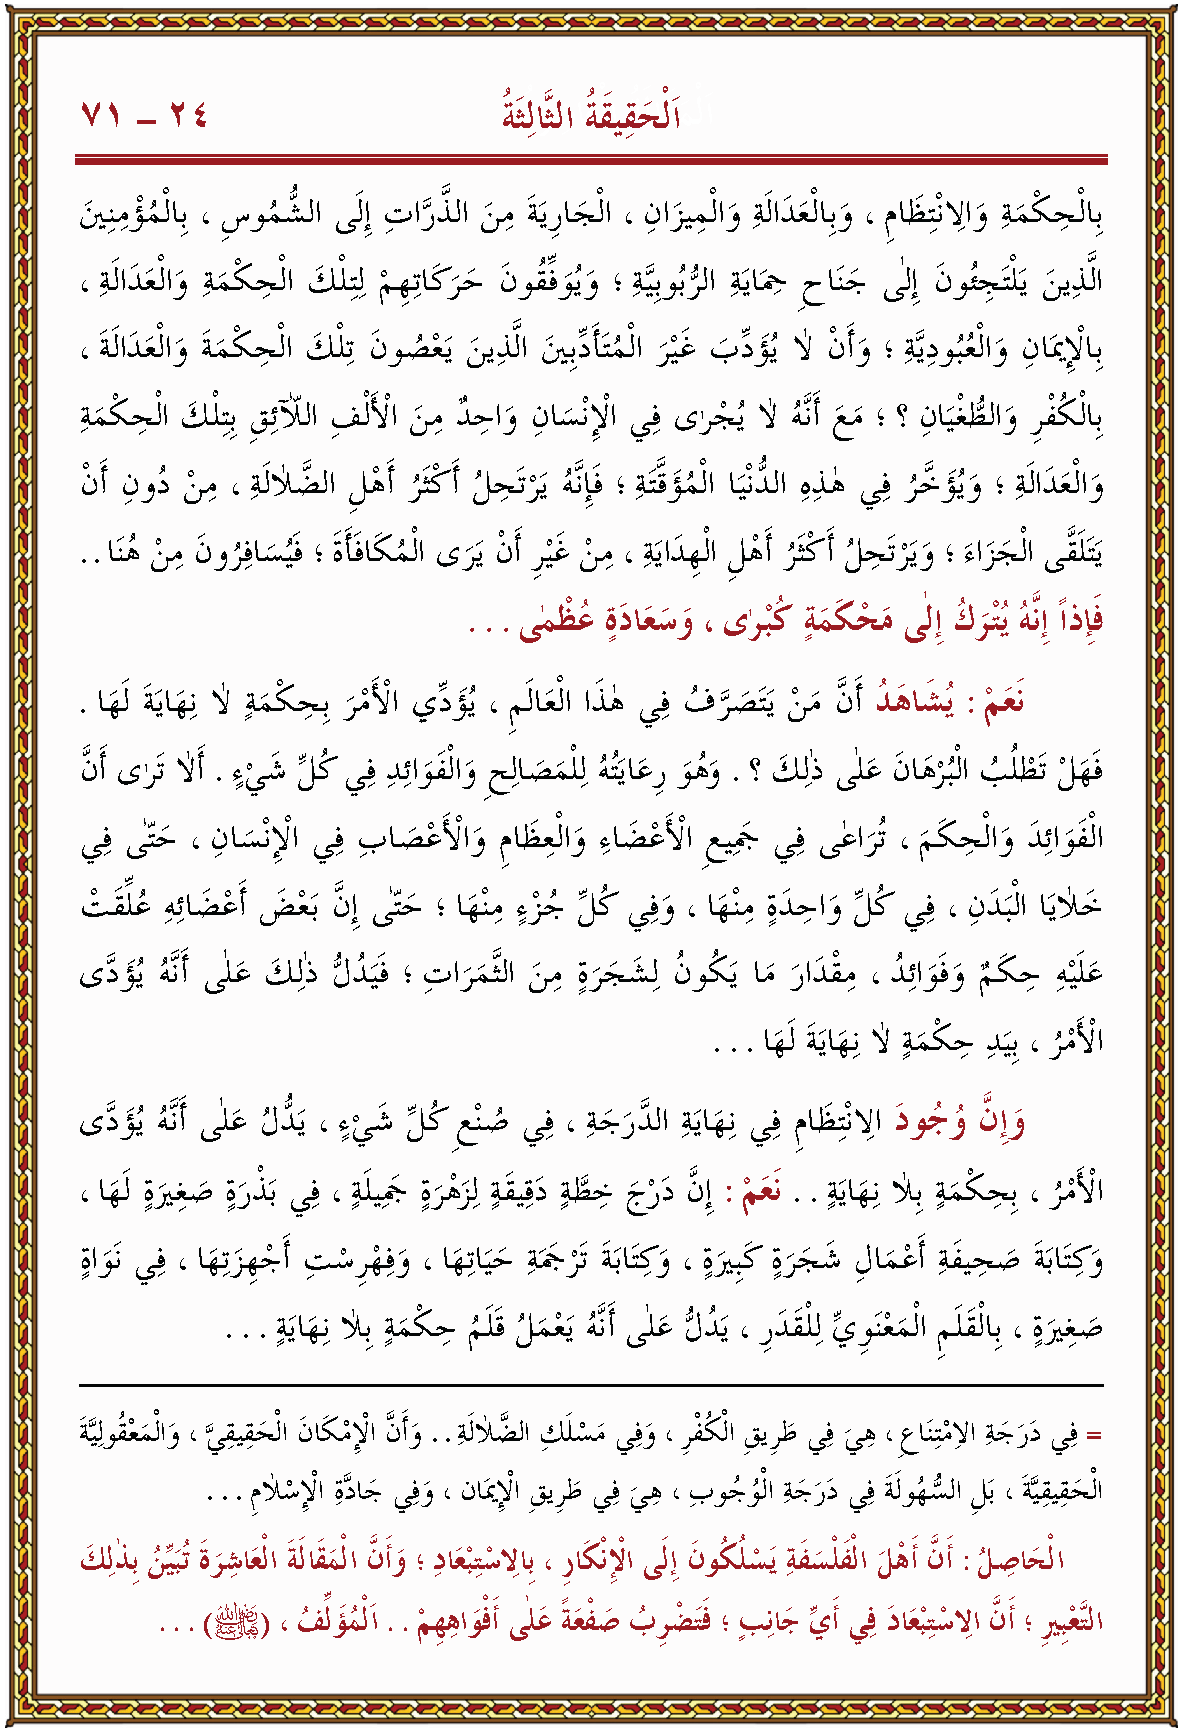 اَلْحَقِيقَةُ الثَّالِثَةُ ٢٤ – ٧١
بِالْحِكْمَةِ وَالِانْتِظَامِ ، وَبِالْعَدَالَةِ وَالْمِيزَانِ ، الْجَارِيَةَ مِنَ الذَّرَّاتِ إِلَى الشُّمُوسِ ، بِالْمُؤْمِنِينَ
الَّذِينَ يَلْتَجِئُونَ إِلٰى جَنَاحِ حِمَايَةِ الرُّبُوبِيَّةِ ؛ وَيُوَفِّقُونَ حَرَكَاتِهِمْ لِتِلْكَ الْحِكْمَةِ وَالْعَدَالَةِ ،
بِالْإِيمَانِ وَالْعُبُودِيَّةِ ؛ وَأَنْ لَا يُؤَدِّبَ غَيْرَ الْمُتَأَدِّبِينَ الَّذِينَ يَعْصُونَ تِلْكَ الْحِكْمَةَ وَالْعَدَالَةَ ،
بِالْكُفْرِ وَالطُّغْيَانِ ؟ ؛ مَعَ أَنَّهُ لَا يُجْرٰى فِي الْإِنْسَانِ وَاحِدٌ مِنَ الْأَلْفِ اللَّآئِقِ بِتِلْكَ الْحِكْمَةِ
وَالْعَدَالَةِ ؛ وَيُؤَخَّرُ فِي هٰذِهِ الدُّنْيَا الْمُؤَقَّتَةِ ؛ فَإِنَّهُ يَرْتَحِلُ أَكْثَرُ أَهْلِ الضَّلَالَةِ ، مِنْ دُونِ أَنْ
يَتَلَقَّى الْجَزَاءَ ؛ وَيَرْتَحِلُ أَكْثَرُ أَهْلِ الْهِدَايَةِ ، مِنْ غَيْرِ أَنْ يَرَى الْمُكَافَأَةَ ؛ فَيُسَافِرُونَ مِنْ هُنَا . .
فَإِذاً إِنَّهُ يُتْرَكُ إِلٰى مَحْكَمَةٍ كُبْرٰى ، وَسَعَادَةٍ عُظْمٰى . . .
نَعَمْ : يُشَاهَدُ أَنَّ مَنْ يَتَصَرَّفُ فِي هٰذَا الْعَالَمِ ، يُؤَدِّي الْأَمْرَ بِحِكْمَةٍ لَا نِهَايَةَ لَهَا .
فَهَلْ تَطْلُبُ الْبُرْهَانَ عَلٰى ذٰلِكَ ؟ . وَهُوَ رِعَايَتُهُ لِلْمَصَالِحِ وَالْفَوَائِدِ فِي كُلِّ شَيْءٍ . أَلَا تَرٰى أَنَّ
الْفَوَائِدَ وَالْحِكَمَ ، تُرَاعٰى فِي جَمِيعِ الْأَعْضَاءِ وَالْعِظَامِ وَالْأَعْصَابِ فِي الْإِنْسَانِ ، حَتّٰى فِي
خَلَايَا الْبَدَنِ ، فِي كُلِّ وَاحِدَةٍ مِنْهَا ، وَفِي كُلِّ جُزْءٍ مِنْهَا ؛ حَتّٰى إِنَّ بَعْضَ أَعْضَائِهِ عُلِّقَتْ
عَلَيْهِ حِكَمٌ وَفَوَائِدُ ، مِقْدَارَ مَا يَكُونُ لِشَجَرَةٍ مِنَ الثَّمَرَاتِ ؛ فَيَدُلُّ ذٰلِكَ عَلٰى أَنَّهُ يُؤَدَّى
الْأَمْرُ ، بِيَدِ حِكْمَةٍ لَا نِهَايَةَ لَهَا . . .
وَإِنَّ وُجُودَ الِانْتِظَامِ فِي نِهَايَةِ الدَّرَجَةِ ، فِي صُنْعِ كُلِّ شَيْءٍ ، يَدُلُّ عَلٰى أَنَّهُ يُؤَدَّى
الْأَمْرُ ، بِحِكْمَةٍ بِلَا نِهَايَةٍ . . نَعَمْ : إِنَّ دَرْجَ خِطَّةٍ دَقِيقَةٍ لِزَهْرَةٍ جَمِيلَةٍ ، فِي بَذْرَةٍ صَغِيرَةٍ لَهَا ،
وَكِتَابَةَ صَحِيفَةِ أَعْمَالِ شَجَرَةٍ كَبِيرَةٍ ، وَكِتَابَةَ تَرْجَمَةِ حَيَاتِهَا ، وَفِهْرِسْتِ أَجْهِزَتِهَا ، فِي نَوَاةٍ
صَغِيرَةٍ ، بِالْقَلَمِ الْمَعْنَوِيِّ لِلْقَدَرِ ، يَدُلُّ عَلٰى أَنَّهُ يَعْمَلُ قَلَمُ حِكْمَةٍ بِلَا نِهَايَةٍ . . .
= فِي دَرَجَةِ الِامْتِنَاعِ ، هِيَ فِي طَرِيقِ الْكُفْرِ ، وَفِي مَسْلَكِ الضَّلَالَةِ . . وَأَنَّ الْإِمْكَانَ الْحَقِيقِيَّ ، وَالْمَعْقُولِيَّةَ
الْحَقِيقِيَّةَ ، بَلِ السُّهُولَةَ فِي دَرَجَةِ الْوُجُوبِ ، هِيَ فِي طَرِيقِ الْإِيمَانِ ، وَفِي جَادَّةِ الْإِسْلَامِ . . .
الْحَاصِلُ : أَنَّ أَهْلَ الْفَلْسَفَةِ يَسْلُكُونَ إِلَى الْإِنْكَارِ ، بِالِاسْتِبْعَادِ ؛ وَأَنَّ الْمَقَالَةَ الْعَاشِرَةَ تُبَيِّنُ بِذٰلِكَ
التَّعْبِيرِ ؛ أَنَّ الِاسْتِبْعَادَ فِي أَيِّ جَانِبٍ ؛ فَتَضْرِبُ صَفْعَةً عَلٰى أَفْوَاهِهِمْ . . اَلْمُؤَلِّفُ ، (رَضِيَ اللهُ عَنْهُ) . . .